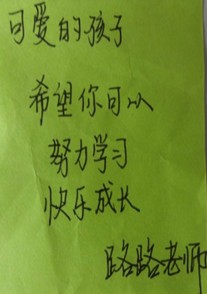 可爱的孩子
希望你可以
努力学习
快乐成长
路路老师